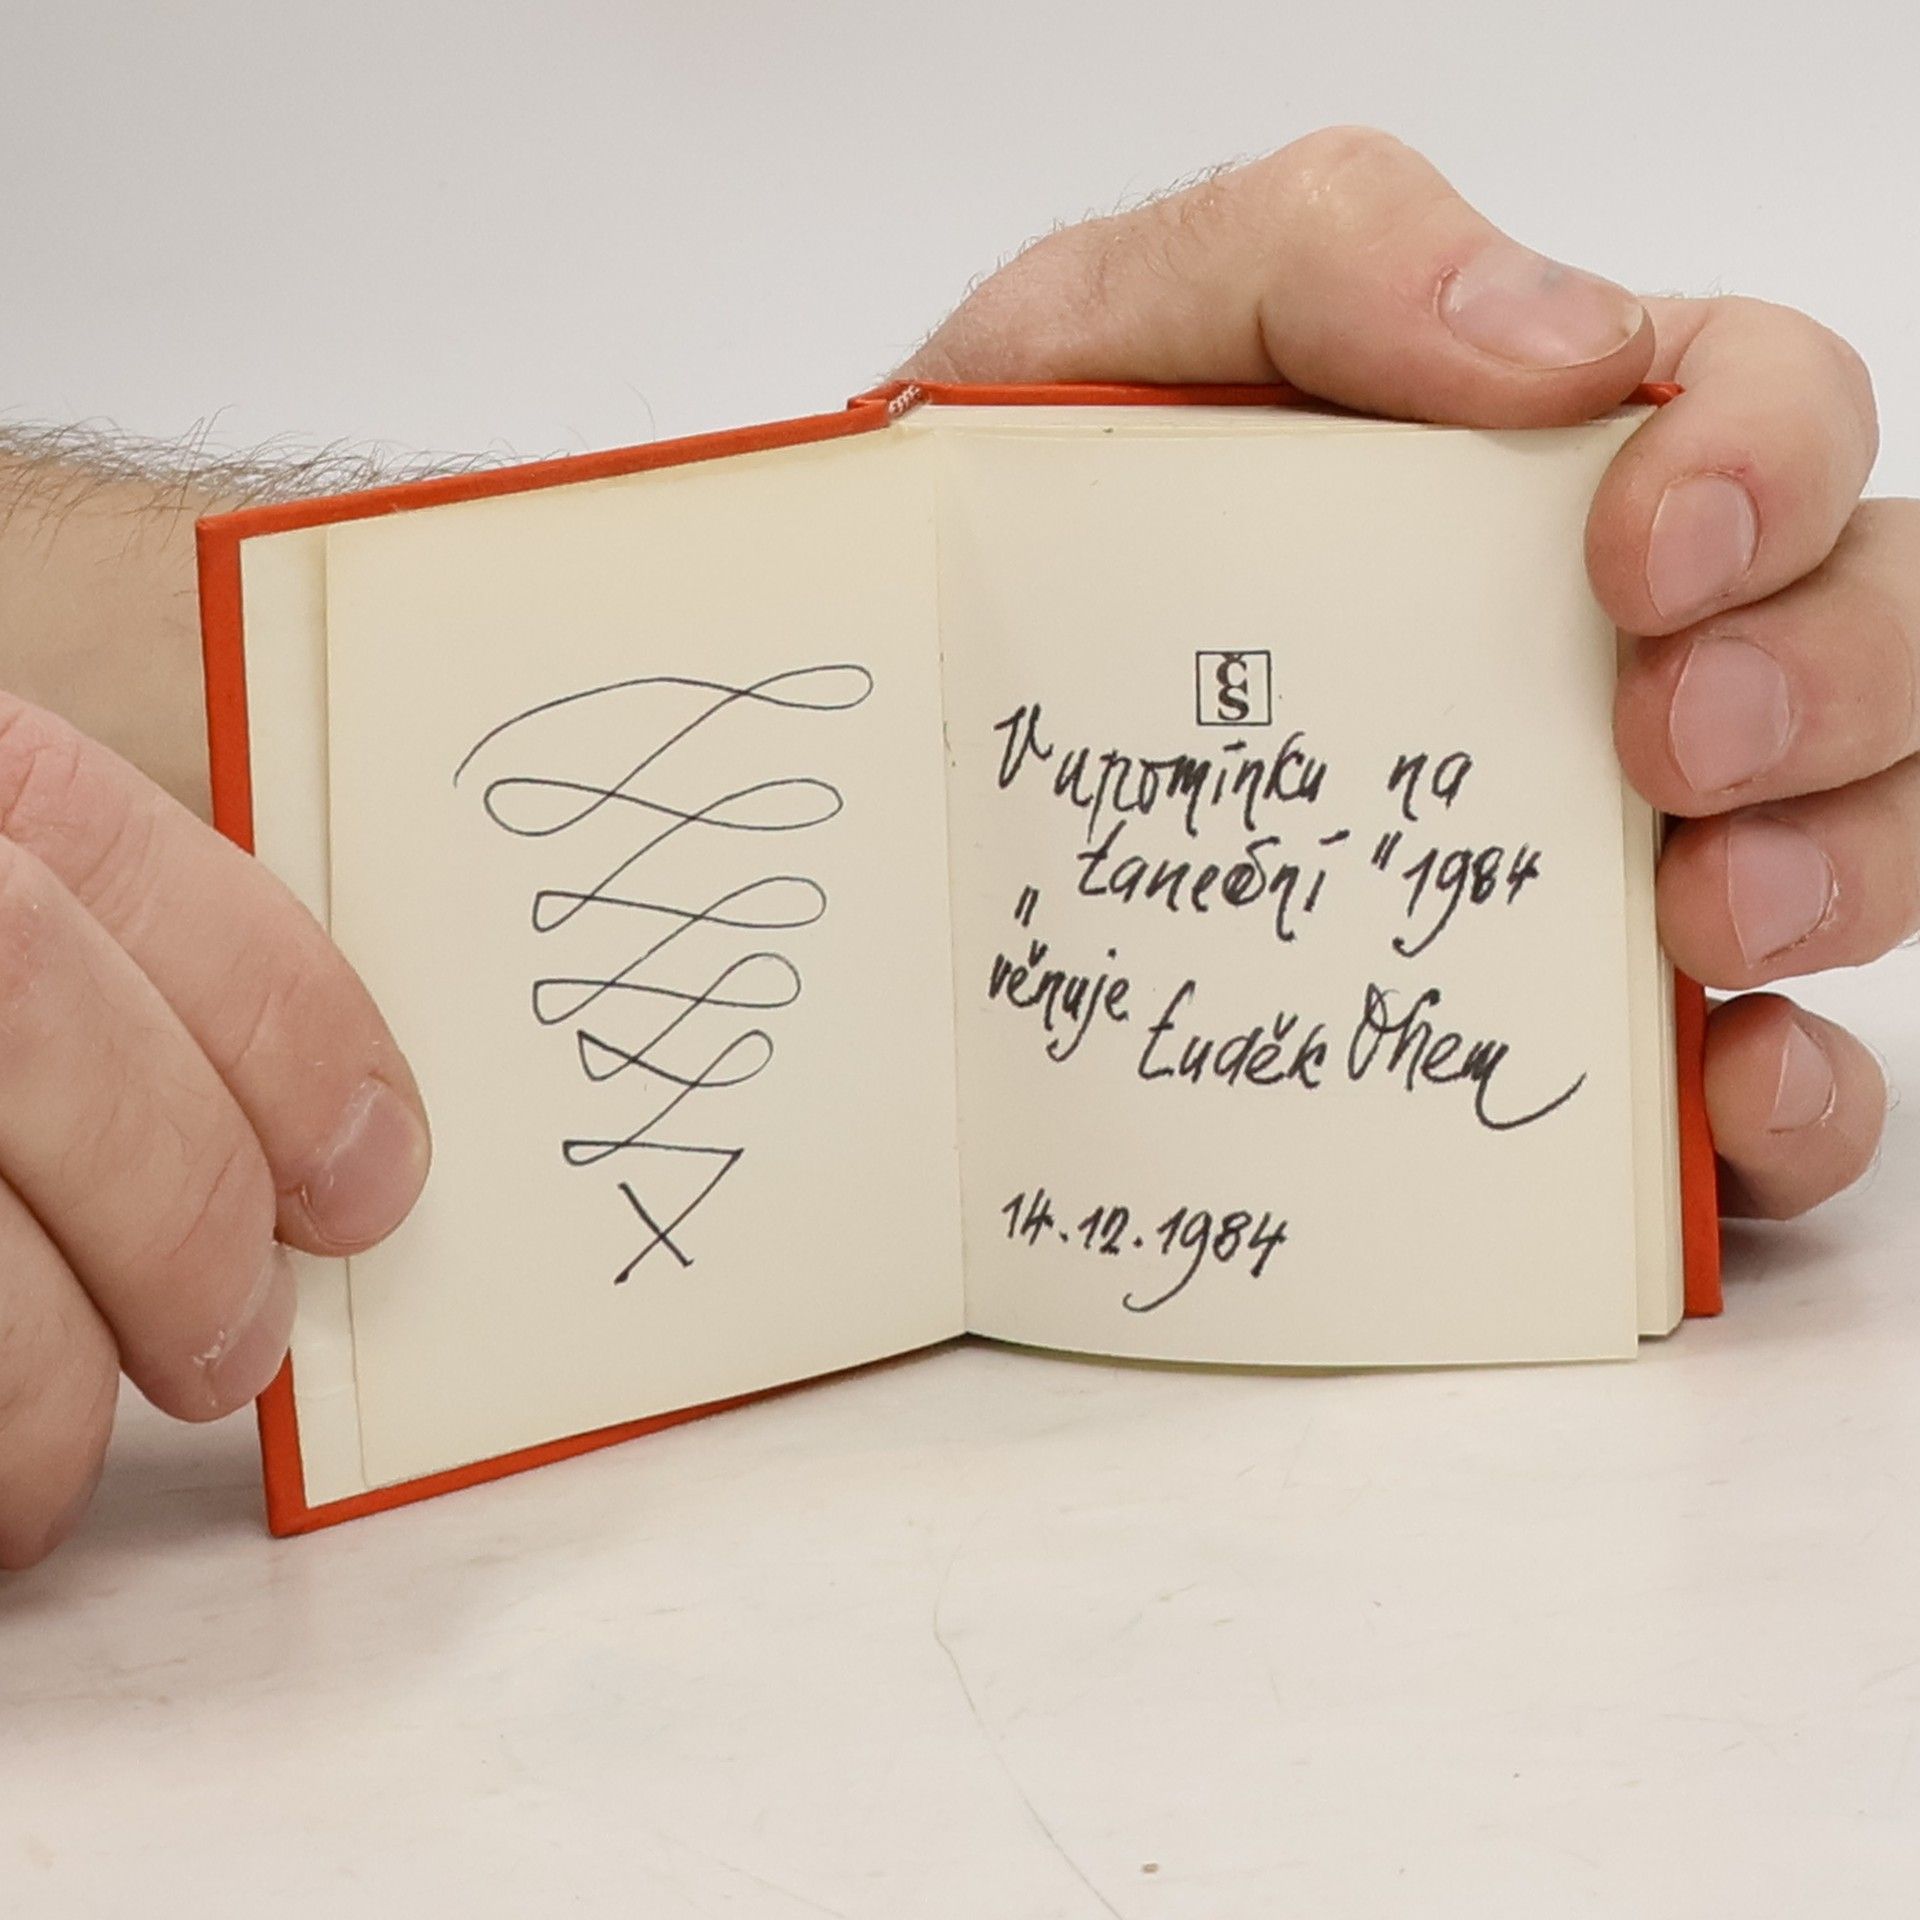 Č
S
V upomínku na
"taneční" 1984
věnuje Luděk Ohem
14.12.1984